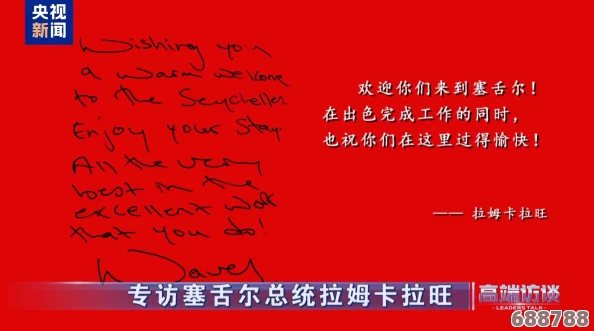 央视
新闻
Wishing you
a warm welcome
to the Seychelles.
Enjoy your stay.
All the very
best in the
excellent work
that you do!
欢迎你们来到塞舌尔！
在出色完成工作的同时，
也祝你们在这里过得愉快！
—— 拉姆卡拉旺
专访塞舌尔总统拉姆卡拉旺
高端访谈
LEADERS TALK
688788